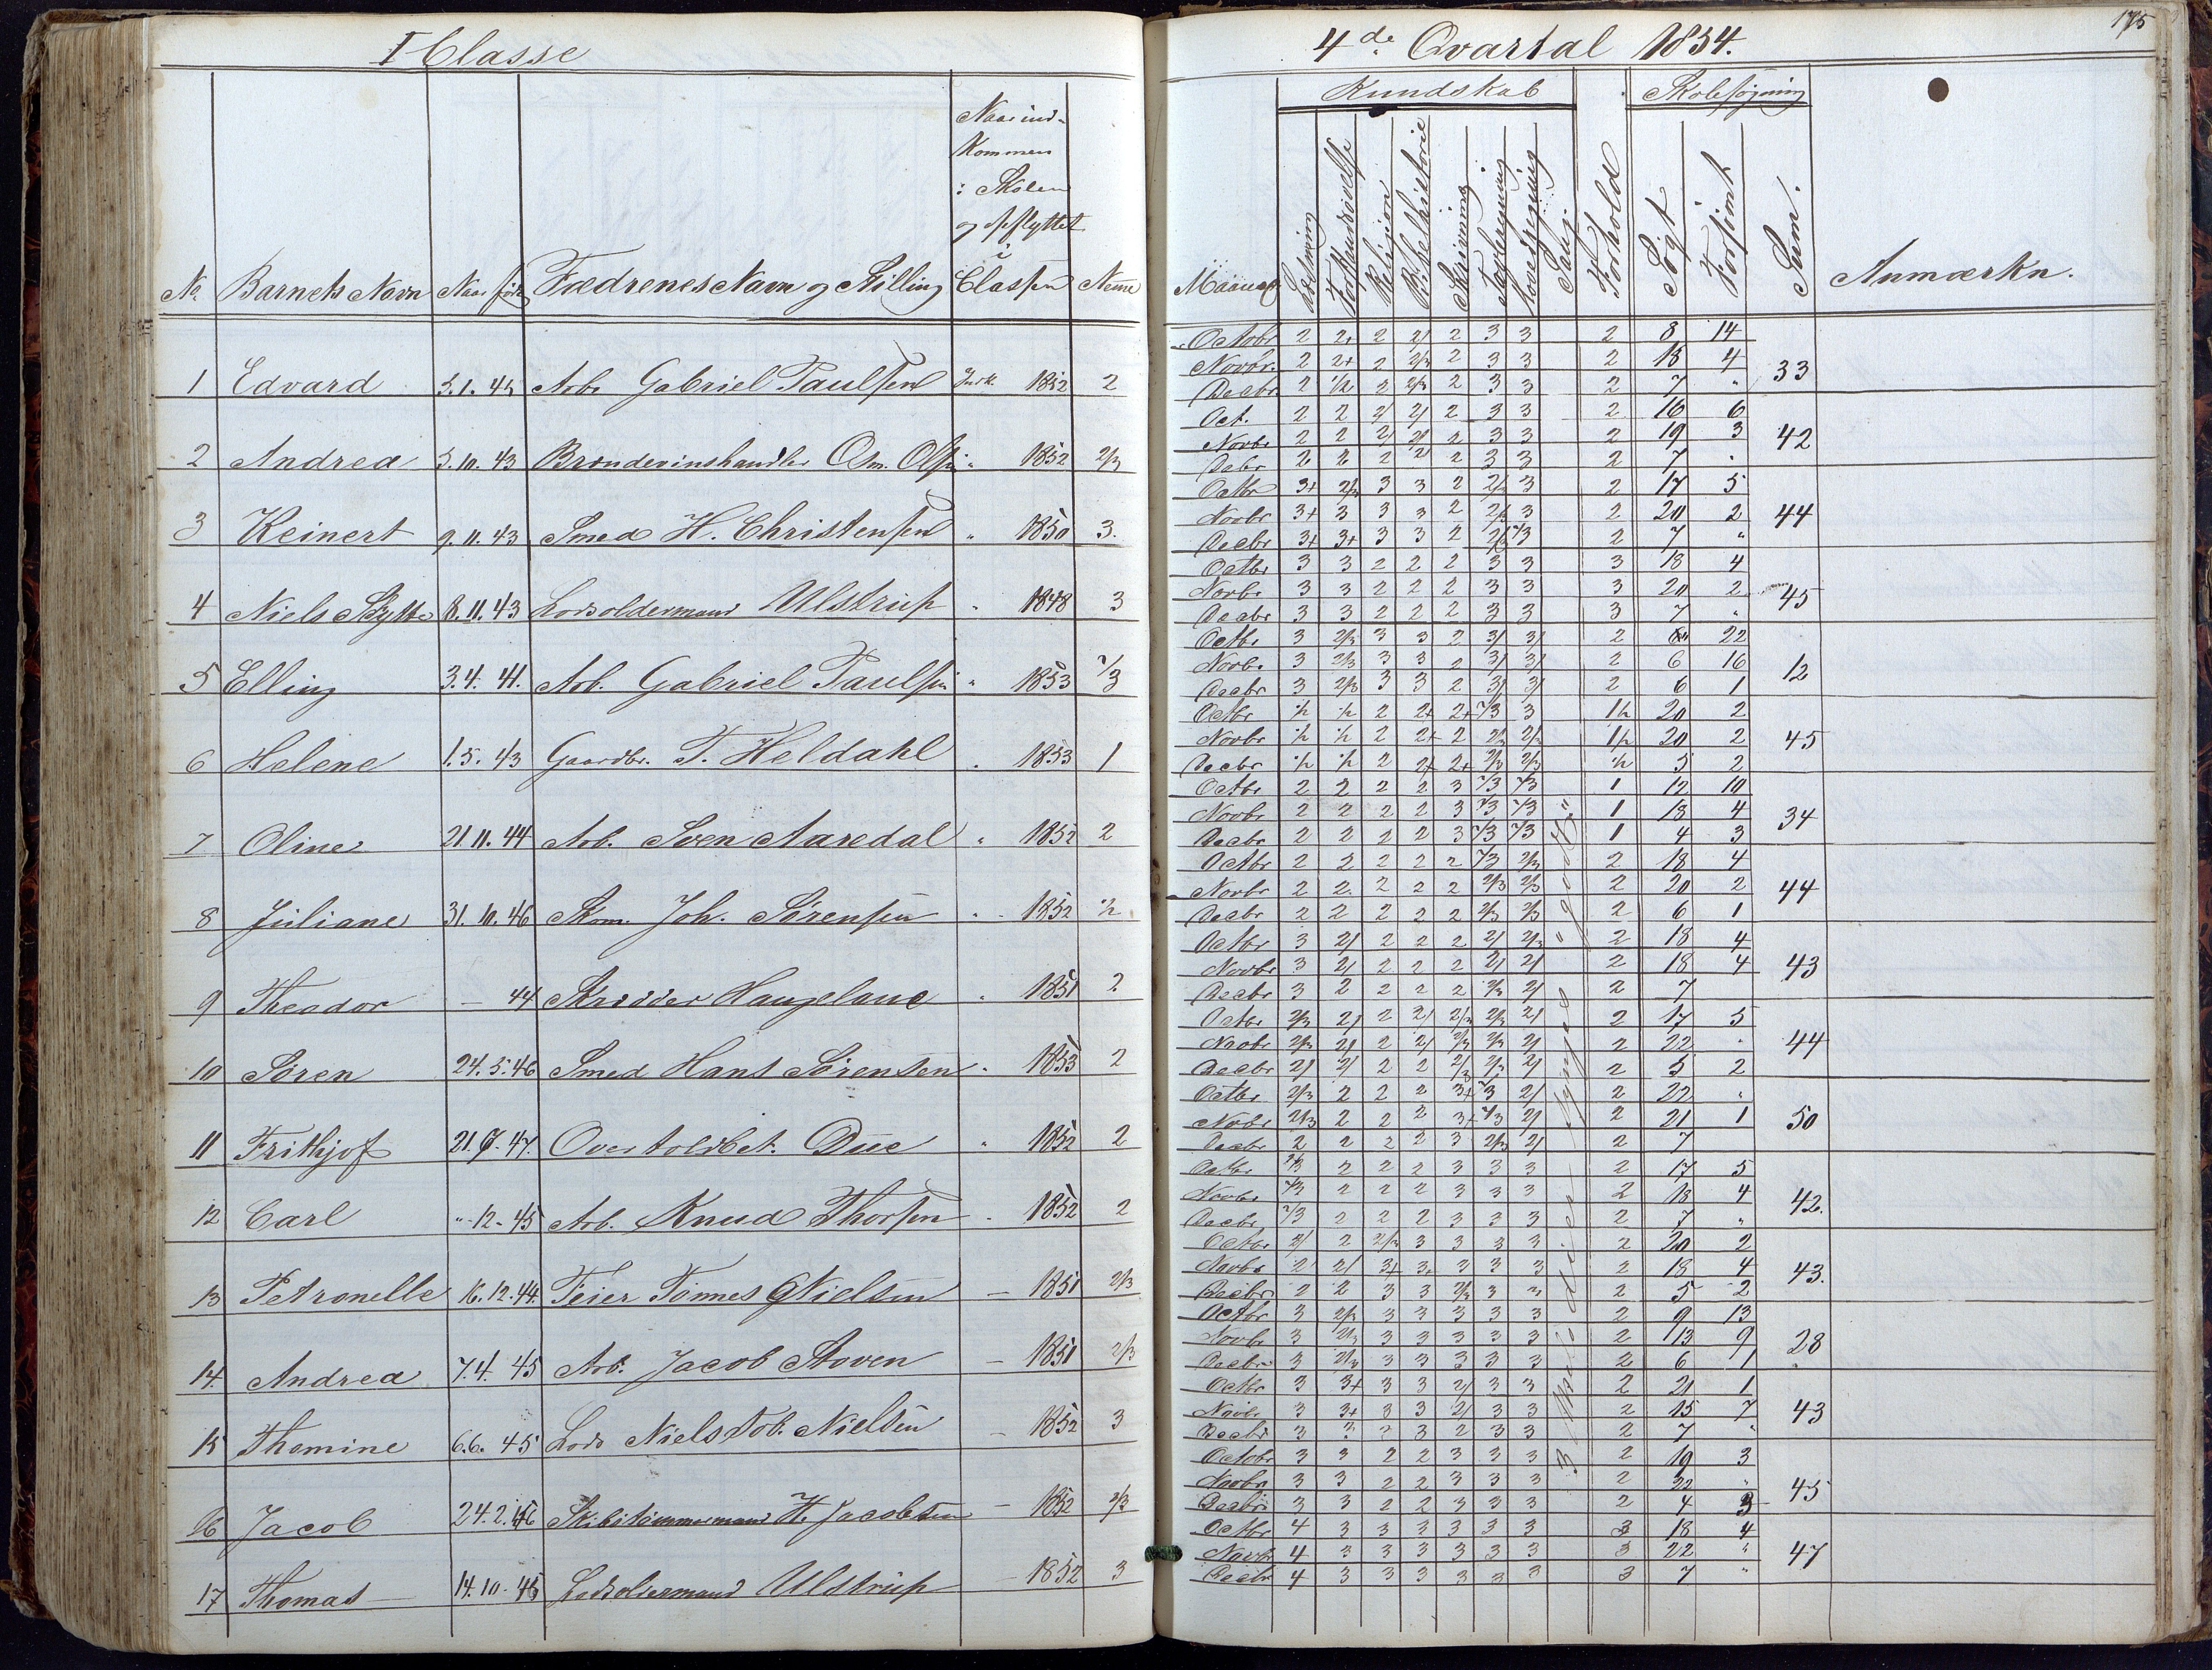 I Classe
No. Barnets Navn Naar født Fædrenes Navn og Stilling Naar ind-
kommen
i Skolen
og opflyttet
i
Classen Nemme
1 Edvard 5.1.45 Arb. Gabriel Paulsen 1852 2
2 Andrea 5.10.43 Brændevinshandler Osm. Olsen " 1852 2/3
3 Reinert 9.11.43 Smed H. Christensen " 1850 3.
4 Niels Skytte 8.11.43 Lodsoldermand Ulstrup " 1848 3
5 Elling 3.4.41. Arb. Gabriel Paulsen " 1853 2/3
6 Helene 1.5.43 Gaardbr. T. Heldahl " 1853 1
7 Oline 21.11.44 Arb. Sven Aaredal " 1852 2
8 Juliane 31.10.46 Skom. Joh. Sørensen " 1852 1/2
9 Theodor – 44 Skrædder Haugeland " 1851 2
10 Søren 24.5.46 Smed Hans Sørensen " 1853 2
11 Frithjof 21.7.47. Overtoldbet. Due " 1852 2
12 Carl "-12-45 Arb. Knud Thorsen " 1852 2
13 Petronelle 16.12.44. Feier Tønnes Nielsen – 1851 2/3
14. Andrea 7.4.45 Arb. Jacob Stoven – 1851 2/3
15 Thomine 6.6.45 Lods Niels Tob. Nielsen – 1852 3
16 Jacob 24.2.46 Skibstømmermand H. Jacobsen – 1852 2/3
17 Thomas 14.10.45 Lodsoldermand Ulstrup – 1852 3
175
4de Qvartal 1854.
Kundskab Skolesøgning
Maaned Læsning Forstandsøvelse Religion Bibelhistorie Skrivning Tavleregning Hovedregning Sang Forhold Søgt Forsømt Sum. Anmærkn.
Octobr 2 2+ 2 2/ 2 3 3 2 8 14
Novbr. 2 2+ 2 2/3 2 3 3 2 18 4 33
Decbr. 2 1/2 2 2/3 2 3 3 2 7 "
Oct. 2 2 2/ 2/ 2 3 3 2 16 6
Novbr 2 2 2/ 2/ 2 3 3 2 19 3 42
Debr 2 2 2 2/ 2 3 3 2 7 "
Octbr 3+ 2/3 3 3 2 2/3 3 2 17 5
Novbr 3+ 3 3 3 2 2/3 3 2 20 2 44
Decbr 3+ 3+ 3 3 2 2/3 2/3 2 7 "
Octbr 3 3 2 2 2 3 3 3 18 4
Novbr 3 3 2 2 2 3 3 3 20 2 45
Decbr 3 3 2 2 2 3 3 3 7 "
Octbr 3 2/3 3 3 2 3/ 3/ 2 " 22
Novbr 3 2/3 3 3 2 3/ 3/ 2 6 16 12
Decbr 3 2/3 3 3 2 3/ 3/ 2 6 1
Octbr 1/2 1/2 2 2+ 2+ 2/3 3 1/2 20 2
Novbr 1/2 1/2 2 2+ 2 2/3 2/3 1/2 20 2 45
Decbr 1/2 1/2 2 2+ 2+ 2/3 2/3 1/2 5 2
Octbr 2 2 2 2 3 2/3 2/3 1 12 10
Novbr 2 2 2 2 3 2/3 2/3 1 18 4 34
Decbr 2 2 2 2 3 2/3 2/3 1 4 3
Octbr 2 2 2 2 2 2/3 2/3 2 18 4
Novbr 2 2 2 2 2 2/3 2/3 2 20 2 44
Decbr 2 2 2 2 2 2/3 2/3 2 6 1
Octbr 3 2/ 2 2 2 2/ 2/3 2 18 4
Novbr 3 2/ 2 2 2 2/ 2/ 2 18 4 43
Decbr 3 2 2 2 2 2/3 2/ 2 7
Octbr 2/3 2/ 2 2/ 2/3 2/3 2/ 2 17 5
Novbr 2/3 2/ 2 2/ 2/3 2/3 2/ 2 22 " 44
Decbr 2/ 2/ 2 2 2/3 2/3 2/ 2 5 2
Octbr 2/3 2 2 2 3+ 2/3 2/ 2 22 "
Nobr 2/3 2 2 2 3+ 2/3 2/ 2 21 1 50
Decbr 2 2 2 2 3 2/3 2/ 2 7
Octbr 2/3 2 2 2 3 3 3 2 17 5
Novbr 2/3 2 2 2 3 3 3 2 18 4 42.
Decbr 2/3 2 2 2 3 3 3 2 7 "
Octbr 2/ 2 2/3 3 3 3 3 2 20 2
Novbr 2 2/ 3+ 3+ 3 3 3 2 18 4 43.
Decbr 2 2 3 3 2/3 3 3 2 5 2
Octbr 3 2/3 3 3 3 3 3 2 9 13
Novbr 3 2/3 3 3 3 3 3 2 13 9 28
Decbr 3 2/3 3 3 3 3 3 2 6 1
Octbr 3 3+ 3 3 2/ 3 3 2 21 1
Novbr 3 3+ 3 3 2/ 3 3 2 15 7 43
Decbr 3 3 3 3 2 3 3 2 7 "
Octobr 3 3 2 2 3 3 3 2 19 3
Novbr 3 3 2 2 3 3 3 2 22 " 45
Decbr 3 3 2 2 3 3 3 2 4 3
Octbr 4 3 3 3 3 3 3 3 18 4
Novbr 4 3 3 3 3 3 3 3 22 " 47
Decbr 4 3 3 3 3 3 3 3 7 "
3 Melodier synges "godt"